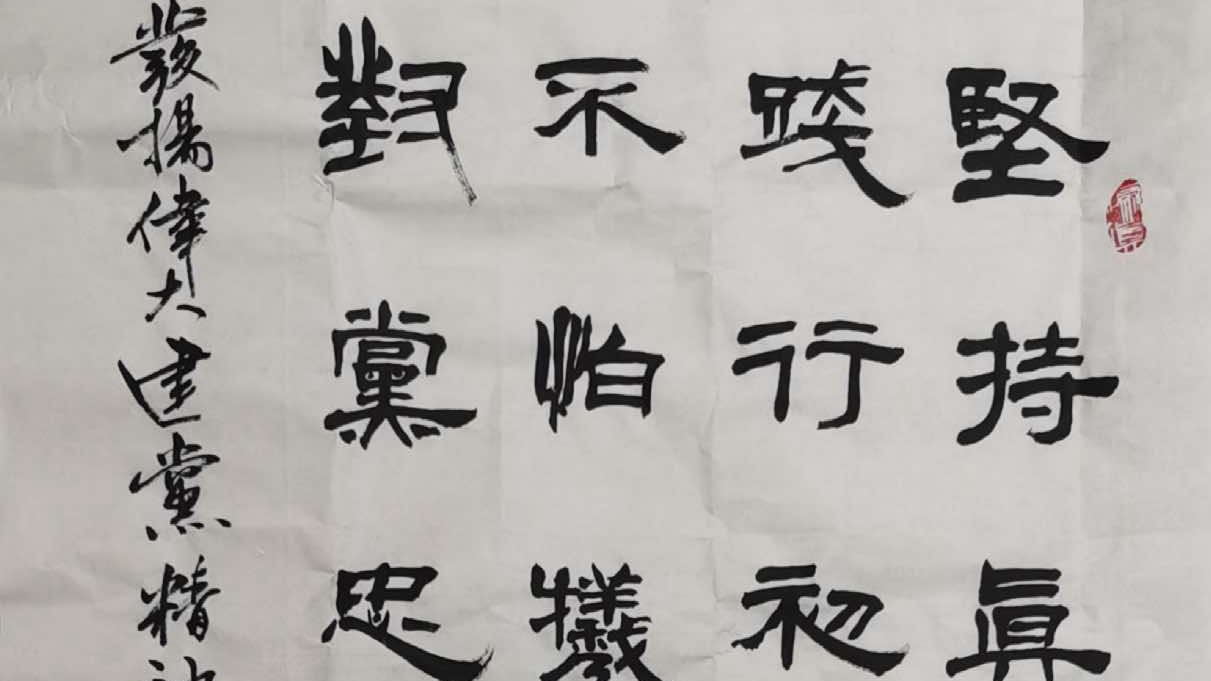 堅持眞
踐行初
不怕犧
對黨忠
發揚偉大建黨精神